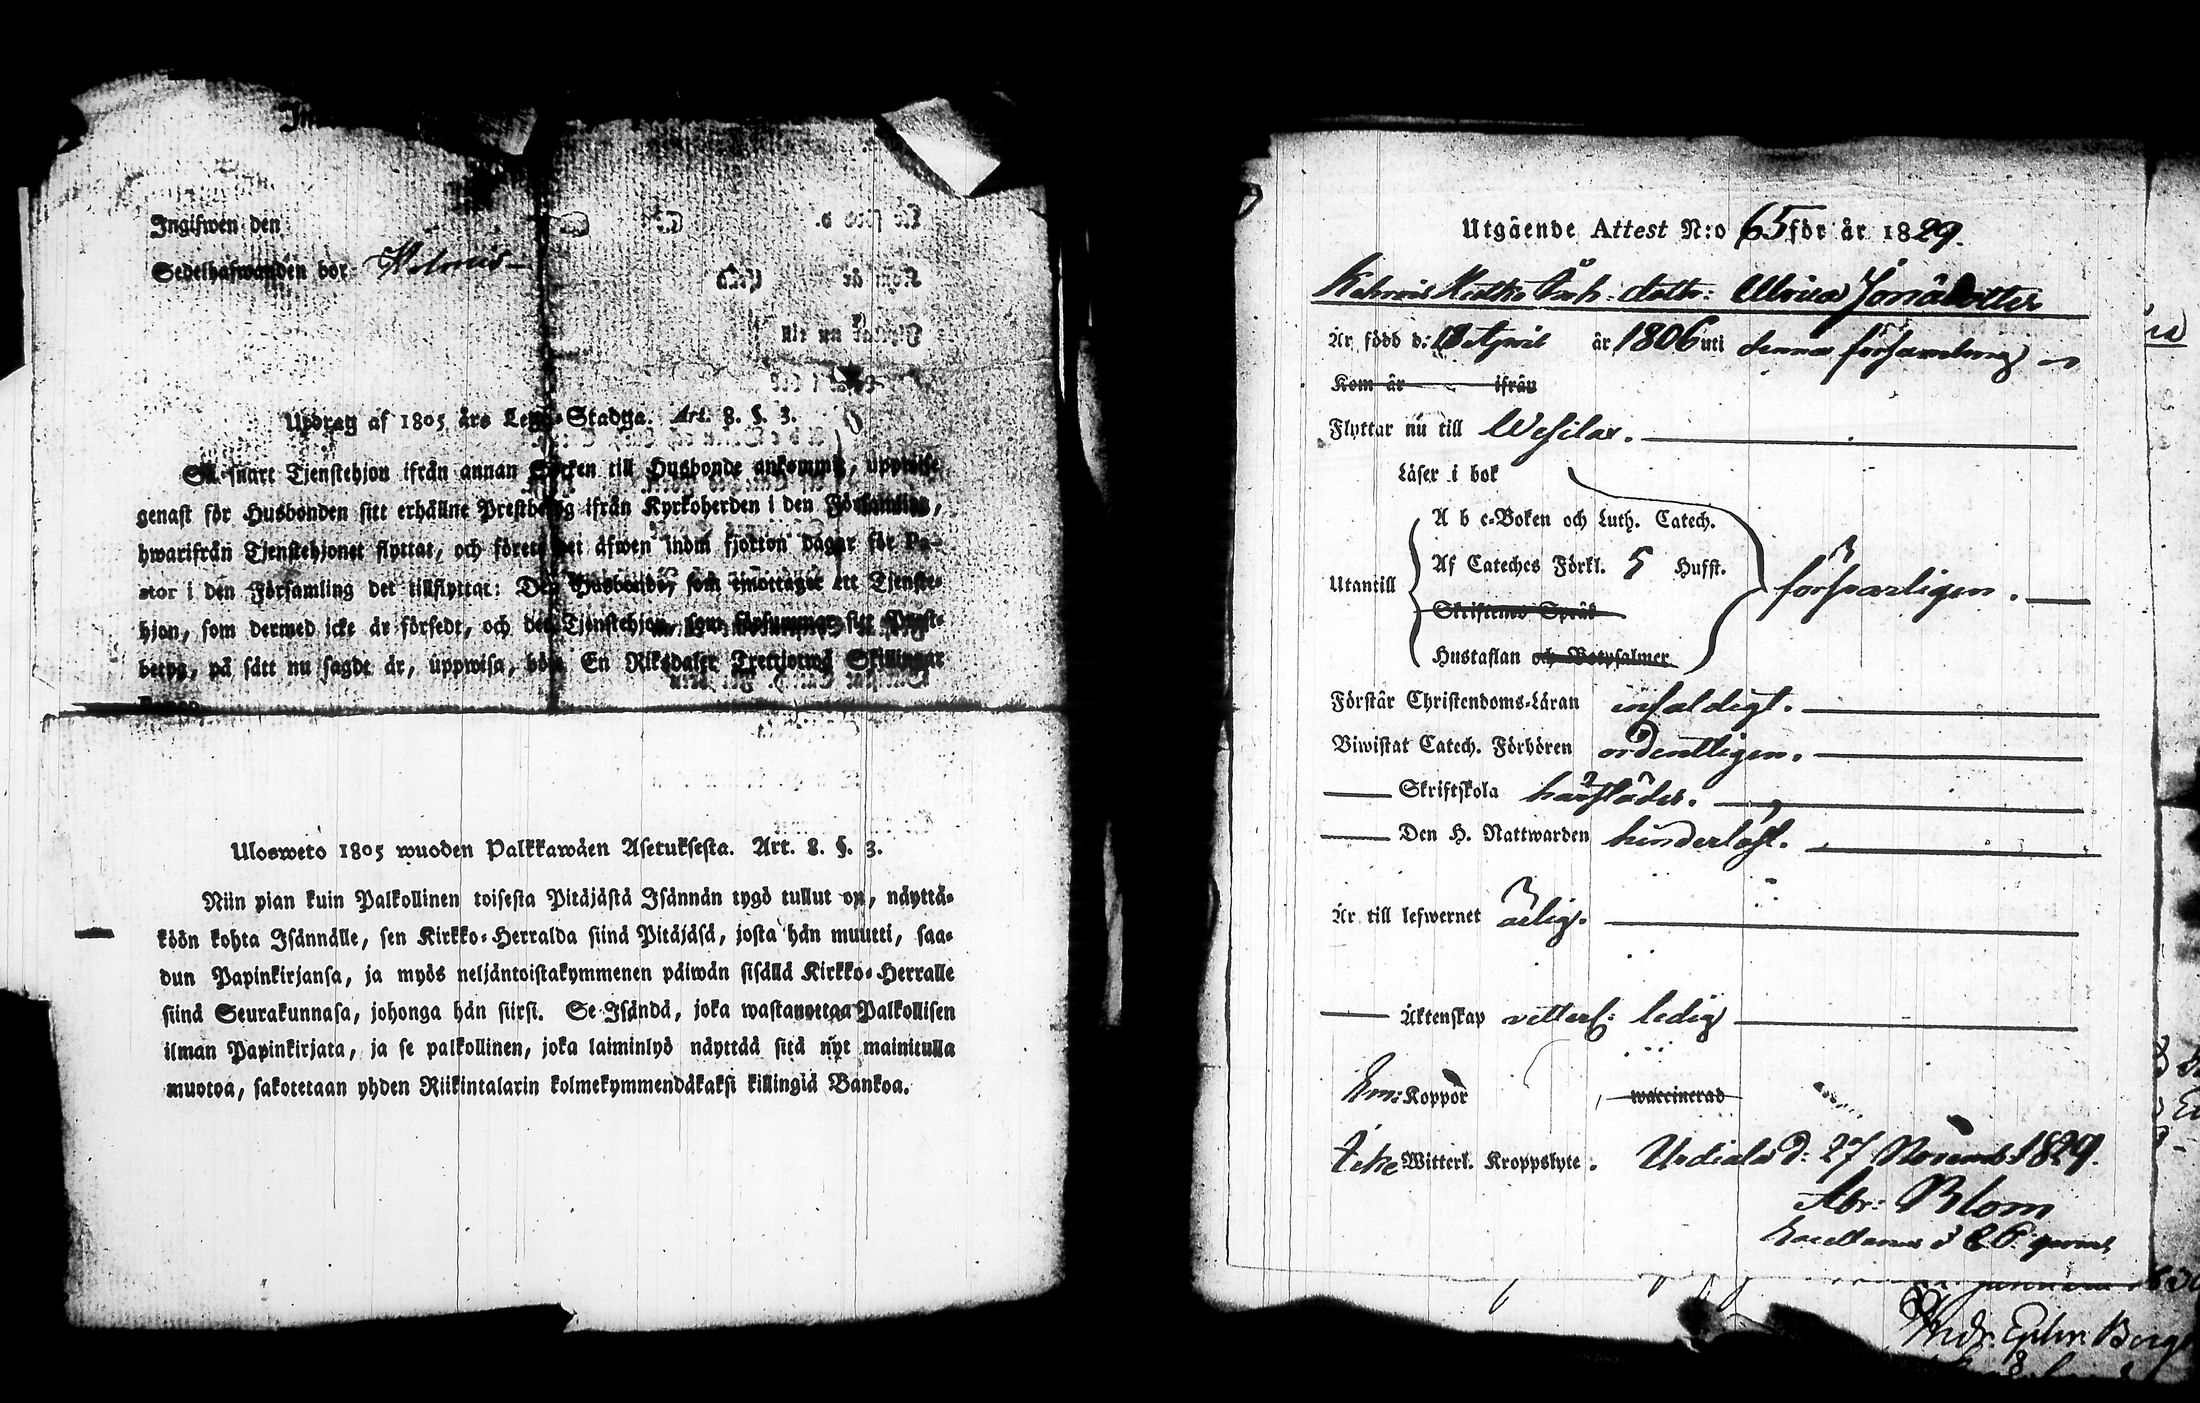 Ingifwen den
Sedelhafwanden bor
Utdrag af 1805 års Lego-Stadga. Art. 8. §. 3.
Så snart Tjenstehjon ifrån annan Socken till Husbonde ankommit, uppwise
genast för Husbonden sitt erhållne Prestbetyg ifrån Kyrkoherden i den Församling,
hwarifrån Tjenstehjonet flyttat, och förete det äfwen inom fjorton dagar för Pa-
stor i den Församling det tillflyttat: Den Husbonde, som emottager ett Tjenste-
hjon, som dermed icke är försedt, och det Tjenstehjon, som försummar sitt Prest-
betyg, på sätt nu sagdt är, uppwisa, böte En Riksdaler Trettjotwå Skillingar
Banco.
Ulosweto 1805 wuoden Palkkawäen Asetuksesta. Art. 8. §. 3.
Niin pian kuin Palkollinen toisesta Pitäjästä Isännän tygö tullut on, näyttä-
köön kohta Isännälle, sen Kirkko-Herralda siinä Pitäjäsä, josta hän muutti, saa-
dun Papinkirjansa, ja myös neljäntoistakymmenen päiwän sisällä Kirkko-Herralle
siinä Seurakunnasa, johonga hän siirsi. Se Isändä, joka wastanottaa Palkollisen
ilman Papinkirjata, ja se palkollinen, joka laiminlyö näyttää sitä nyt mainitulla
muotoa, sakotetaan yhden Riikintalarin kolmekymmendäkaksi killingiä Bankoa.
Utgående Attest N:o 65 för år 1829.
dottr: Ulrica Jonädotter
Är född d: April år 1806 uti denna församling
Kom år ifrån
Flyttar nu till Wesilax.
Läser i bok
A b c-Boken och Luth. Catech.
Af Cateches Förkl. 5 Hufst.
Utantill
försvarligen.
Skriftenes Språk
Hustaflan och Botpsalmer
Förstår Christendoms-Läran enfaldigt.
Biwistat Catech. Förhören ordentligen.
Skriftskola härstädes.
Den H. Nattwarden hinderlöst.
Är till lefwernet ärlig.
Äktenskap vetterl: ledig
Koppor waccinerad
Icke Witterl. Kroppslyte. Urdiala d: 27 Novemb: 1829.
Abr: Blom